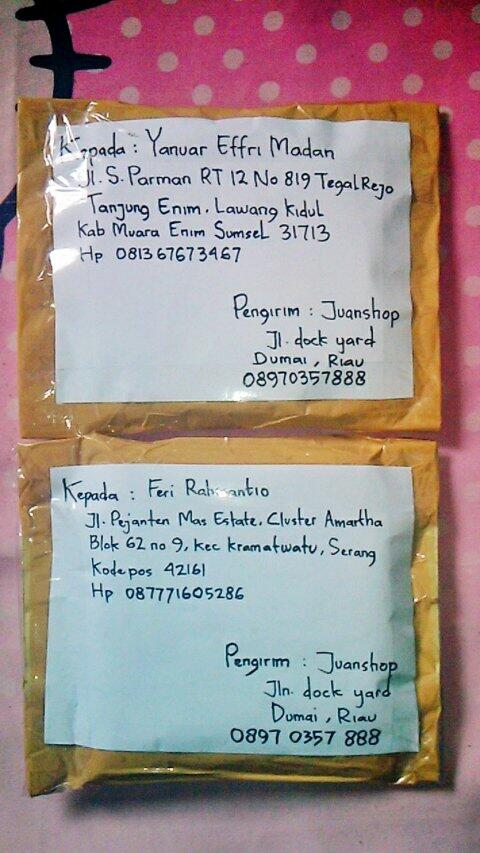 Kepada : Yanuar Effri Madan
Jl. S. Parman RT 12 No 819 Tegal Rejo
Tanjung Enim, Lawang Kidul
Kab Muara Enim Sumsel 31713
Hp 081367673467
Pengirim : Juanshop
Jl. dock yard
Dumai, Riau
08970357888
Kepada : Feri
Jl. Pejanten Mas Estate, Cluster Amartha
Blok G2 no 9, kec kramatwatu, Serang
Kodepos 42161
Hp 087771605286
Pengirim : Juanshop
Jln. dock yard
Dumai, Riau
0897 0357 888